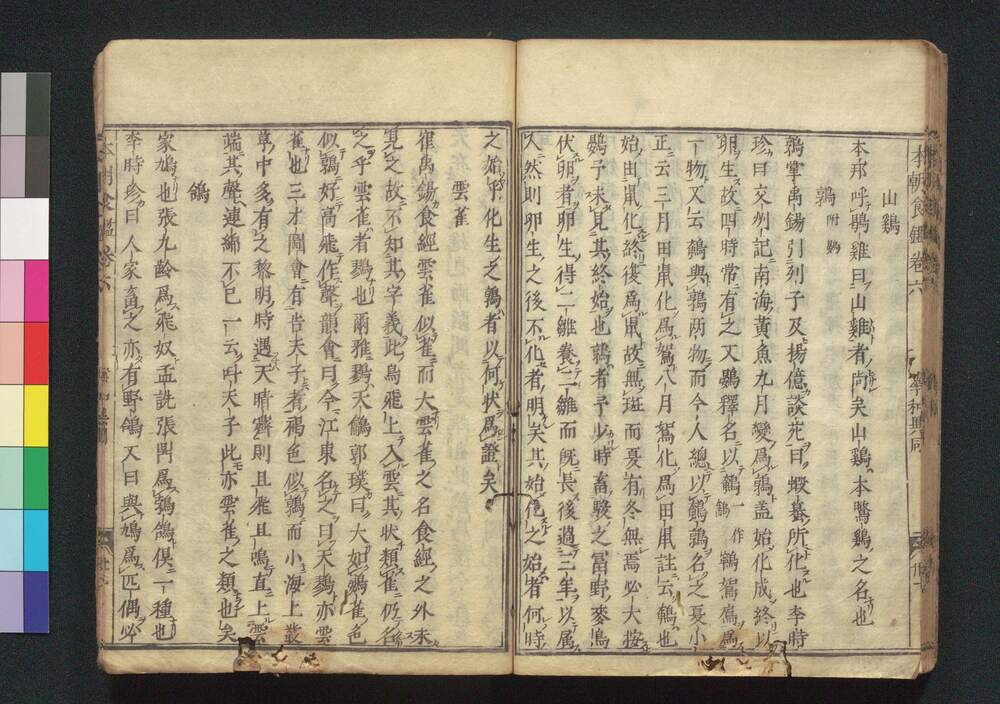 本朝食鑑卷六
華和異同
山鷄
本邦呼鸐雞曰山雞者尚矣山鷄本鷩鷄之名也
鶉附鷃
鶉掌禹錫引列子及楊億談苑曰蝦蟇所化也李時
珍曰交州記南海黃魚九月變爲鶉盖始化成終以
卵生故四時常有之又鷃釋名以鶕一作鵪鴽鳸爲
一物又云鵪與鶉兩物而今人總以鵪鶉名之夏小
正云三月田鼠化爲鴽八月鴽化爲田鼠註云鵪也
始由鼠化終後爲鼠故無斑而夏有冬無焉必大按
鷃予未見其終始也鶉者予少時畜駿之冨野麥鳥
伏卵者卵生得二雛養二雛而既長後過三年以属
人然則卵生之後不化者明矣其始化之始者何時
之始乎化生之鶉者以何状爲證矣
雲雀
崔禹錫食經雲雀似雀而大雲雀之名食經之外未
見之故不知其字義此鳥飛上入雲其状類雀仍名
之乎雲雀者鷚也爾雅鷚天鸙郭璞曰大如鷃雀色
似鶉好高飛作聲韻會曰今江東名之曰天鷚亦雲
雀也三才圖會有告天子者褐色似鶉而小海上叢
草中多有之黎明時遇天晴霽則且飛且鳴直上雲
端其聲連綿不已一云叫天子此亦雲雀之類也矣
鴿
家鳩也張九齡爲飛奴孟詵張鼎爲鵓鴿倶一種也
李時珍曰人家畜之亦有野鴿又曰與鳩爲匹偶必